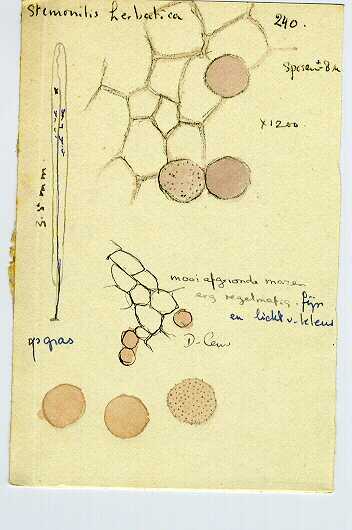 Stemonitis herbatica
240.
Sporen ± 8 µ
x 1200
5.5 mm
mooi afgeronde mazen
erg regelmatig. fijn
en licht v. kleur
op gras